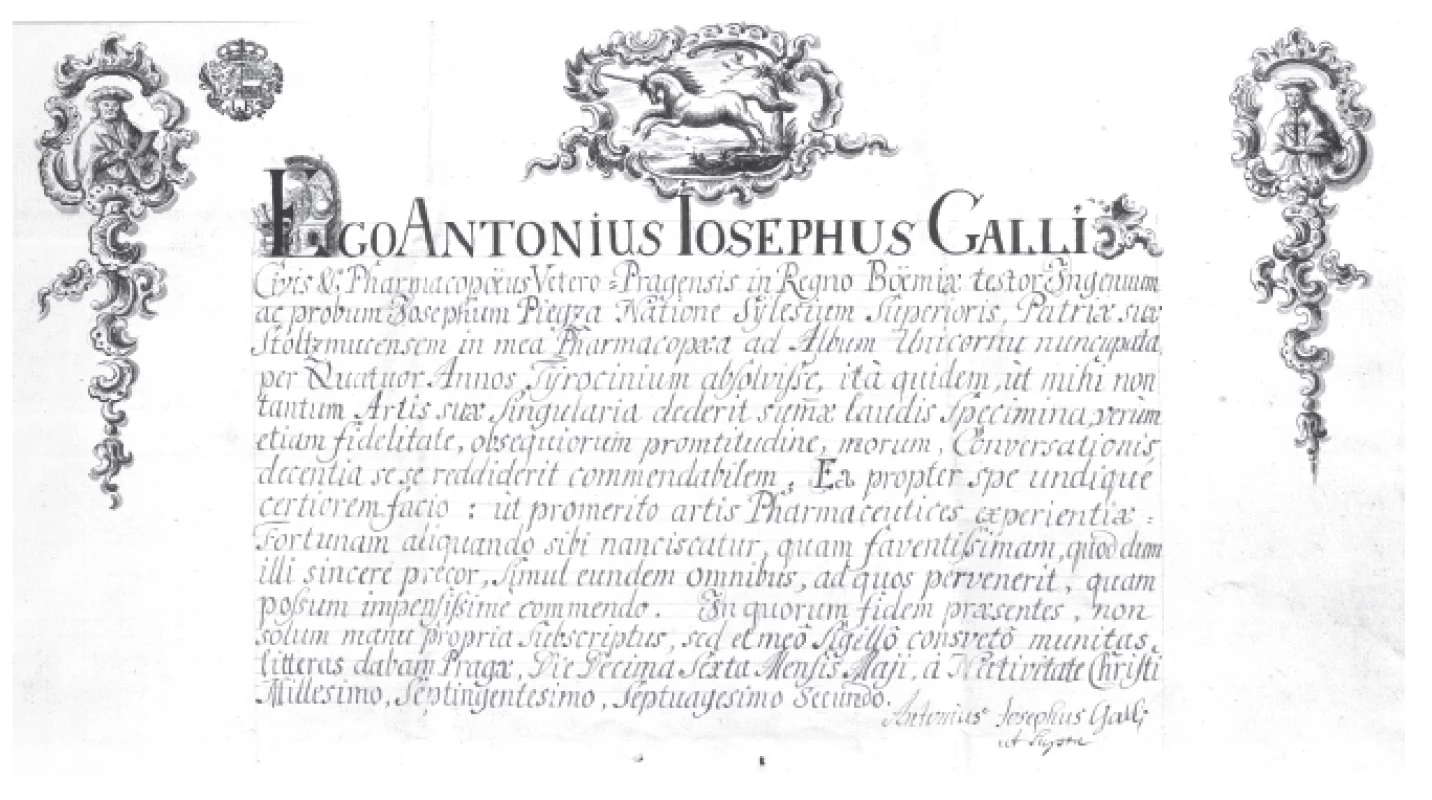 EGO ANTONIUS IOSEPHUS GALLI
Civis & Pharmacopœius Vetero = Pragensis in Regno Böemiæ testor Ingenuum
ac probum Josephum Piegza Natione Sylesium Superioris, Patriæ suæ
Stoltzmucensem in mea Pharmacopæa ad Album Unicornu nuncupata,
per Quatuor Annos Tyrocinium absolvisse, ità quidem, ùt mihi non
tantum Artis suæ Singularia dederit sum̄æ laudis Specimina, verùm
etiam fidelitate, obsequiorum promtitudine, morum, Conversationis
decentia se se reddiderit commendabilem. Ea propter spe undiqué
certiorem facio : ùt promerito artis Pharmaceutices experientiæ =
Fortunam aliquando sibi nanciscatur, quam faventissimam, quod dum
illi sinceré precor, Simul eundem omnibus, ad quos pervenerit, quam
possum impensissime commendo. In quorum fidem præsentes, non
solum manu propria Subscriptus, sed et meô Sigillô consvetô munitas,
Litteras dabam Pragæ, Die Decima Sexta Mensis Maji, à Nativitate Christi
Millesimo, Septingentesimo, Septuagesimo Secundo.
Antonius Josephus Galli
ut Supra